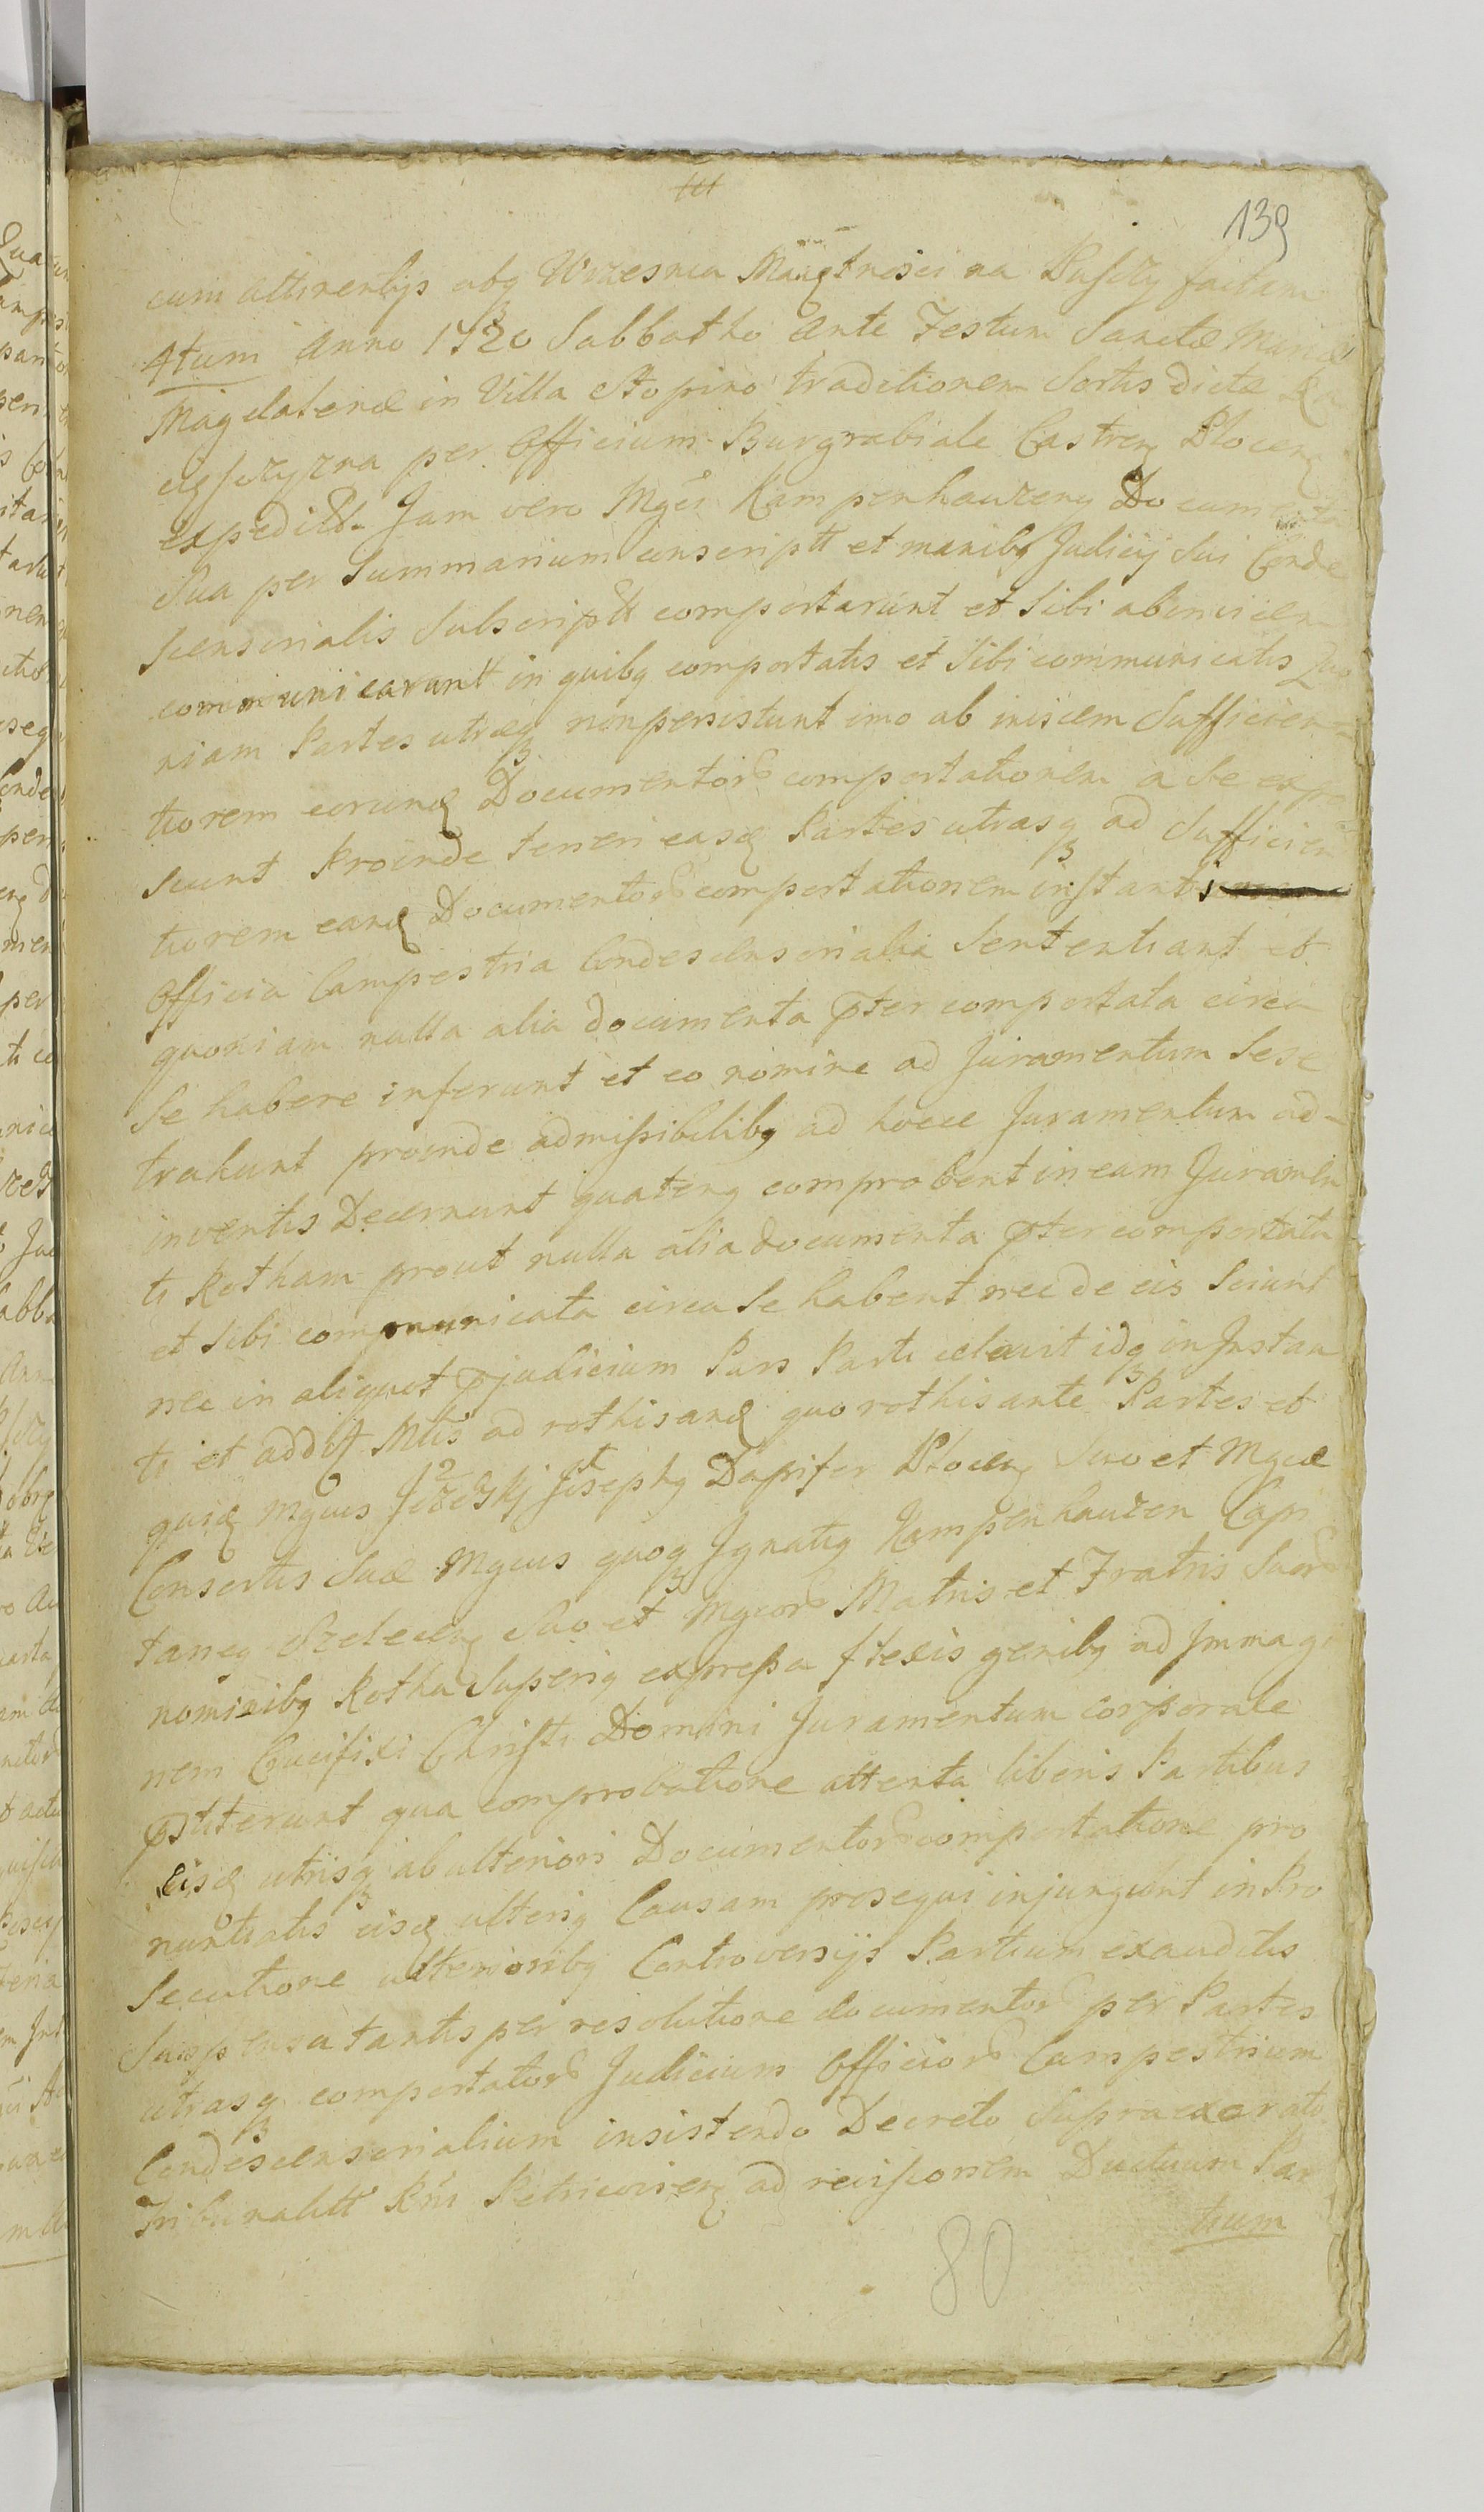 139
cum attinentijs absq Wrzesnia Majętnosci na Puszczy factam
4tum Anno 1720 Sabbatho Ante Festum Sanctæ Mariæ
Magdalenæ in Villa Stopino traditionem Sortis dictæ
per Officium Burgrabiale Castren Plocen
expeditt. Jam vero Mgci Kampenhauzeny Documenta
Sua per Summarium conscriptt et manibq Judicij Sui Conde
scensorialis Subscriptt comportarunt et Sibi abinvicem
communicarunt in quibq comportatis et Sibi communicatis Quo
niam Partes utræq non persistunt imo ab invicem Sufficien=
tiorem eorund Documentor comportationem a Se expo
scunt Proinde teneri easd Partes utrasq ad Sufficien
tiorem eand Documentor comportationem instanti
Officia Campestria Condescensorialia Sententiant et
quoniam nulla alia documenta pter comportata circa
Se habere inferunt et eo nomine ad Juramentum Sese
trahunt proinde admissibilibq ad hocce Juramentum ad=
inventis Decernunt quatenq comprobent in eam Juramen
ti Rotham prout nulla alia documenta pter comportata
et Sibi communicata circa Se habent nec de eis Sciunt
nec in aliquot pjudicium Pars Parti celavit idq in Instan
ti et addit Mtis ad rothisand quo rothisante Partes et
quid Mgcus Jezezskj Josephq Dapifer Plocen Suo et Mgcæ
Consortis Suæ Mgcus quoq Ignatiq Kampenhauzen Capi
taneq Szelecen Suo et Mgcor Matris et Fratris Suor
nominibq Rotha Superiq expressa flexis genibq ad Immagi
nem Crucifixi Christi Domini Juramentum corporale
pstiterunt qua comprobatione attenta liberis Partibus
eisd utrisq ab ulteriori Documentor comportatione pro
nuntiatis eisd ulteriq Causam prosequi injungunt in Pro
Secutione ulterioribq Controversijs Partium exauditis
Suspensa tantisper resolutione documentor per Partes
utrasq comportator Judicium Officior Campestrium
Condescensorialium insistendo Decreto Supraexarato
Tribunalitt Rni Petricovien ad revisionem Ductuum Par
tium
80